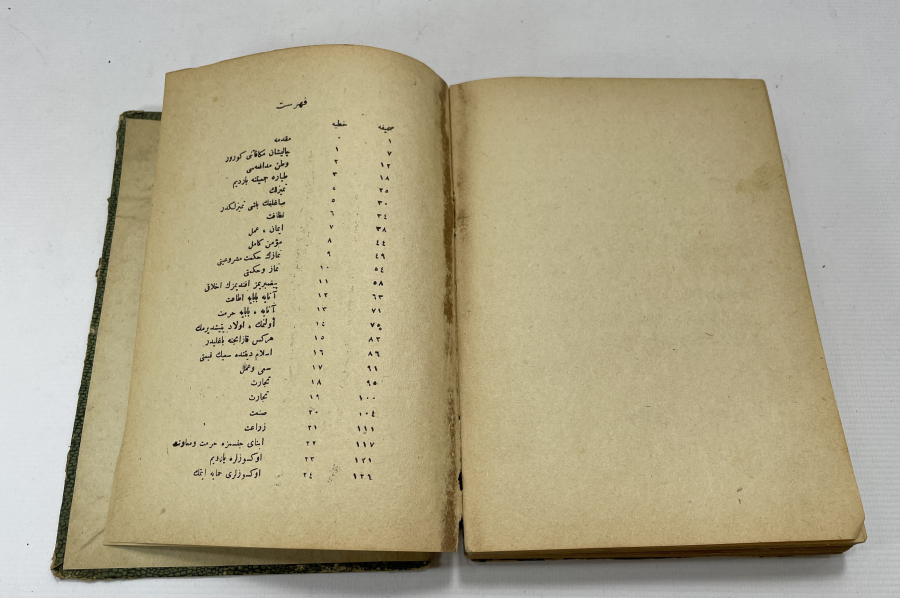 فهرست
صحيفه خطبه
١ ٠ مقدمه
٧ ١ چاليشان مكافاتى كورور
١٢ ٢ وطن مدافعه‌سى
١٨ ٣ طياره جمعيتنه ياردیم
٢٥ ٤ تميزلك
٣٠ ٥ صاغلغك باشى تميزلكدر
٣٤ ٦ نظافت
٣٨ ٧ ايمان ، عمل
٤٤ ٨ مؤمن كامل
٤٩ ٩ نمازك حكمت مشروعيتى
٥٤ ١٠ نماز وحكمتى
٥٨ ١١ پيغمبريمز افنديمزك اخلاقى
٦٣ ١٢ آنايه بابايه اطاعت
٧١ ١٣ آنايه ، بابايه حرمت
٧٥ ١٤ أولنمك ، اولاد يتيشديرمك
٨٣ ١٥ هركس قازانجنه باغليدر
٨٦ ١٦ اسلام ديننده سعيك قيمتى
٩١ ١٧ سعى وعمل
٩٥ ١٨ تجارت
١٠٠ ١٩ تجارت
١٠٤ ٢٠ صنعت
١١١ ٢١ زراعت
١١٧ ٢٢ ابناى جنسمزه حرمت ومعاونت
١٢١ ٢٣ اوكسوزلره ياردیم
١٢٦ ٢٤ اوكسوزلرى حمايه ايتمك